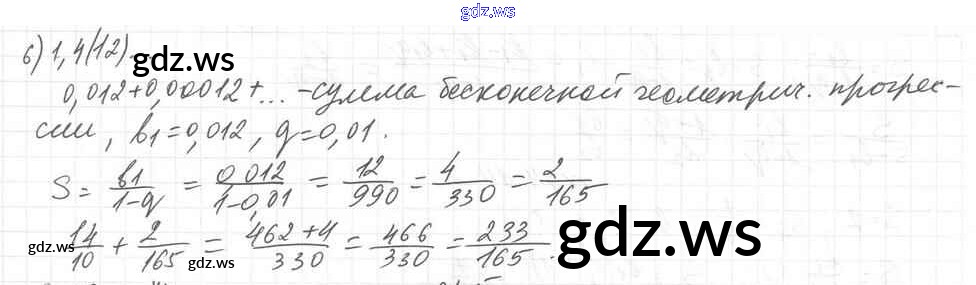 gdz.ws
б) 1,4(12). gdz.ws
0,012+0,00012+... -сумма бесконечной геометрич. прогрес-
сии, b1=0,012, q=0,01.
S = b1/1-q = 0,012/1-0,01 = 12/990 = 4/330 = 2/165
14/10 + 2/165 = 462+4/330 = 466/330 = 233/165. gdz.ws
gdz.ws
gdz.ws